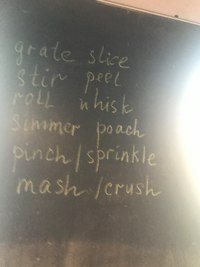 grate slice
stir peel
roll whisk
simmer poach
pinch/sprinkle
mash/crush